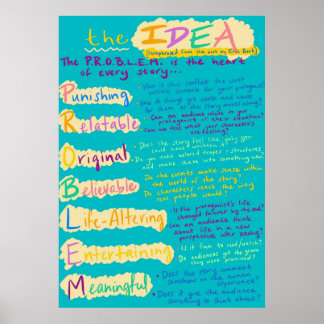 the IDEA
(paraphrased from the book by Erik Bork)
The P.R.O.B.L.E.M. is the heart
of every story...
Punishing
• How is this conflict the worst
possible scenario for your protagonist?
• How do things get worse and worse
for them as the story moves along?
Relatable
• Can an audience relate to your
protagonist or their situation?
• Can we tell what your characters
are feeling?
Original
• Does the story feel like only you
could have written it?
• Do you take beloved tropes & structures,
and make them into something new?
Believable
• Do the events make sense within
the world of the story?
• Do characters react the way
real people would?
Life-Altering
• Is the protagonist's life
changed forever by the end?
• Can an audience think
about life in a new
perspective after seeing?
Entertaining
• Is it fun to read/watch?
• Do audiences get the genre
they were promised?
Meaningful
• Does the story comment
somehow on the human
experience?
• Does it give the audience
something to think about?